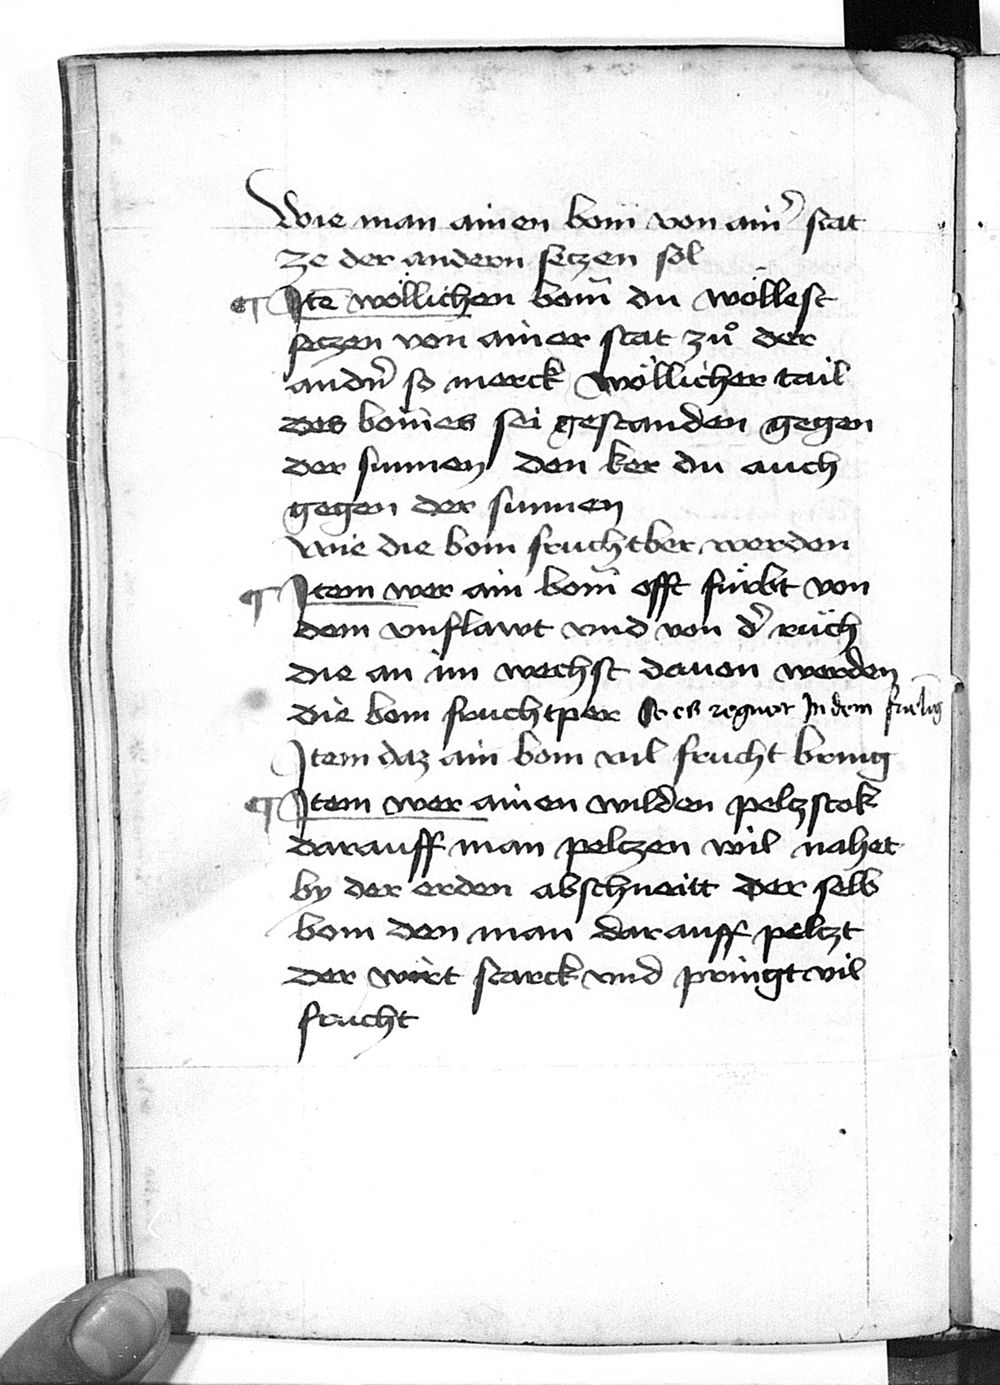 Wie man ainen bom̄ von ain᷑ stat
ze der andern setzen sol
¶ Itē wöllichen bom̄ du wöllest
setzen von ainer stat zů der
andn᷑ so merck wöllicher tail
des bom̄es sei gestanden gegen
der sunnen den ker du auch
gegen der sunnen
Wie die bom fruchtber werden
¶ Item wer ain bom̄ offt fürbt von
dem vnflawt vnd von d᷑ rüch
die an im wechst dauon werden
die bom fruchtper So es regnet In dem früling
Item daz ain bom vil frucht bring
¶ Item wer ainen wilden pelzstok
darauff man pelczen wil nahet
by der erden abschneitt der selb
bom den man darauff pelczt
der wirt starck vnd pringt vil
frucht